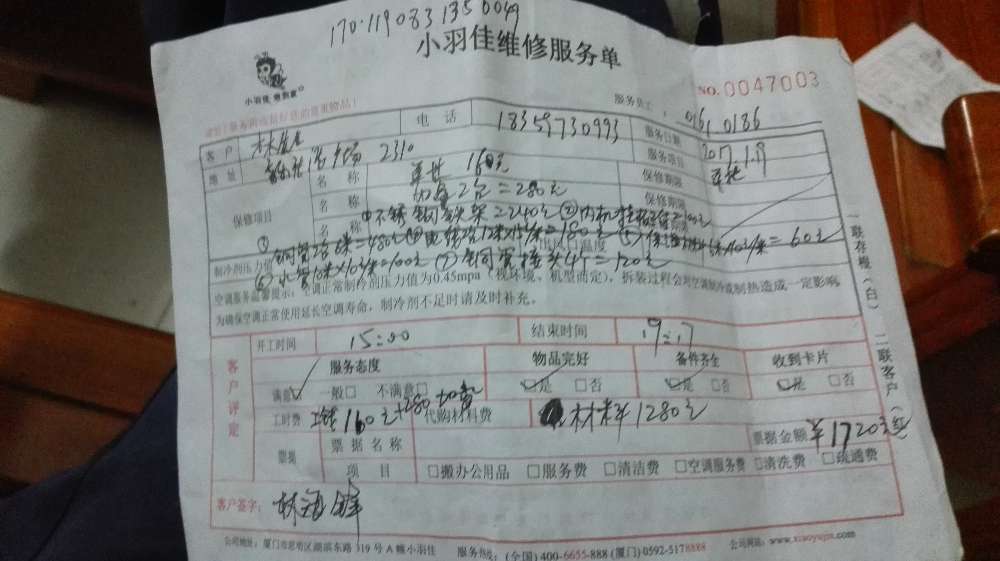 170·119083 135 0049
小羽佳维修服务单
小羽佳 帮我家
NO.0047003
服务员工: 0161 0186
客户 电话 18359730993 服务日期 2017.1.19
地址 2310 服务项目
保修项目 名称 160元 保修期限
名称 2台=280元 保修期限
名称 ①不锈钢 架=240元②内机
①铜管 =480元 =180元⑤ =60元
制冷剂压力值 ⑥水管10米×10元/米=100元⑦铜管接头4个=120元 出风口温度
空调服务温馨提示:空调正常制冷剂压力值为0.45mpa(视环境、机型而定),拆装过程会对空调制冷或制热造成一定影响,
为确保空调正常使用延长空调寿命,制冷剂不足时请及时补充。
一联存根(白) 二联客户(
客户评定
开工时间 15:00 结束时间 19:17
服务态度 物品完好 备件齐全 收到卡片
满意 一般□ 不满意□ 是 □否 是 □否 是 □否
工时费 160元+280加氟 代购材料费 材料1280元
票据 票据名称 票据金额 ¥1720元
项目 □搬办公用品 □服务费 □清洁费 □空调服务费 □清洗费 □疏通费
客户签字: 林海锋
公司地址:厦门市思明区湖滨东路319号A幢小羽佳 服务热线:(全国)400-6655-888(厦门)0592-5178888 公司网站:www.xiaoyujia.com